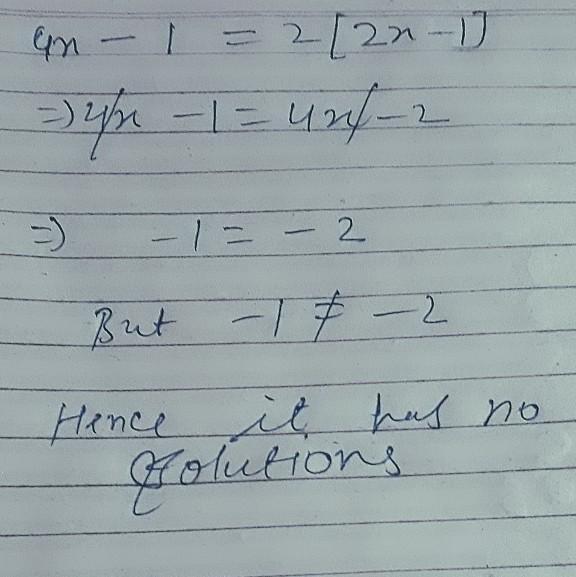 4x - 1 = 2[2x-1]
⇒ 4x - 1 = 4x - 2
⇒ -1 = - 2
But -1 ≠ -2
Hence it has no
solutions